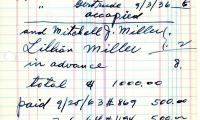 " Gertrude 9/3/36 6
occupied
and Mitchell J. Miller,
Lillian Miller
in advance 8.
total $ 1000.00
paid 9/20/63 #869 500.00
500.00